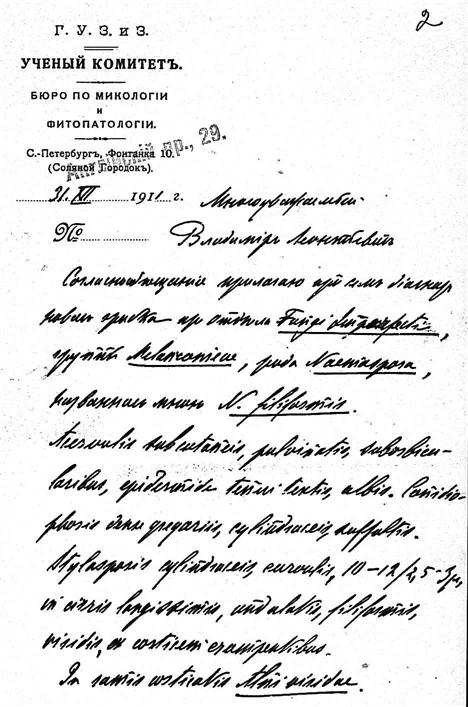 2
Г. У. З. и З.
УЧЕНЫЙ КОМИТЕТЪ.
БЮРО ПО МИКОЛОГІИ
И
ФИТОПАТОЛОГІИ.
пр., 29.
С.-Петербургъ, Фонтанка 10.
(Соляной Городокъ).
31 XII 1911 г.
Многоуважаемый
№
Владимiръ Леонтьевичъ
прилагаю при семъ діагнозъ
грибка изъ отдѣла Fungi Imperfecti,
группы Melanconieae, рода Naemaspora,
названнаго мною N. filiformis.
Acervulis subcutaneis, pulvinatis, suborbicu-
laribus, epidermide tenui tectis, albis. Conidio-
phoris dense gregariis, cylindraceis, suffultis.
Stylosporis cylindraceis, curvulis, 10-12/2,5-3μ,
in cirris longissimis, undulatis, filiformis,
viridis, ex corticem erumpentibus.
In ramis corticatis Alni viridae.